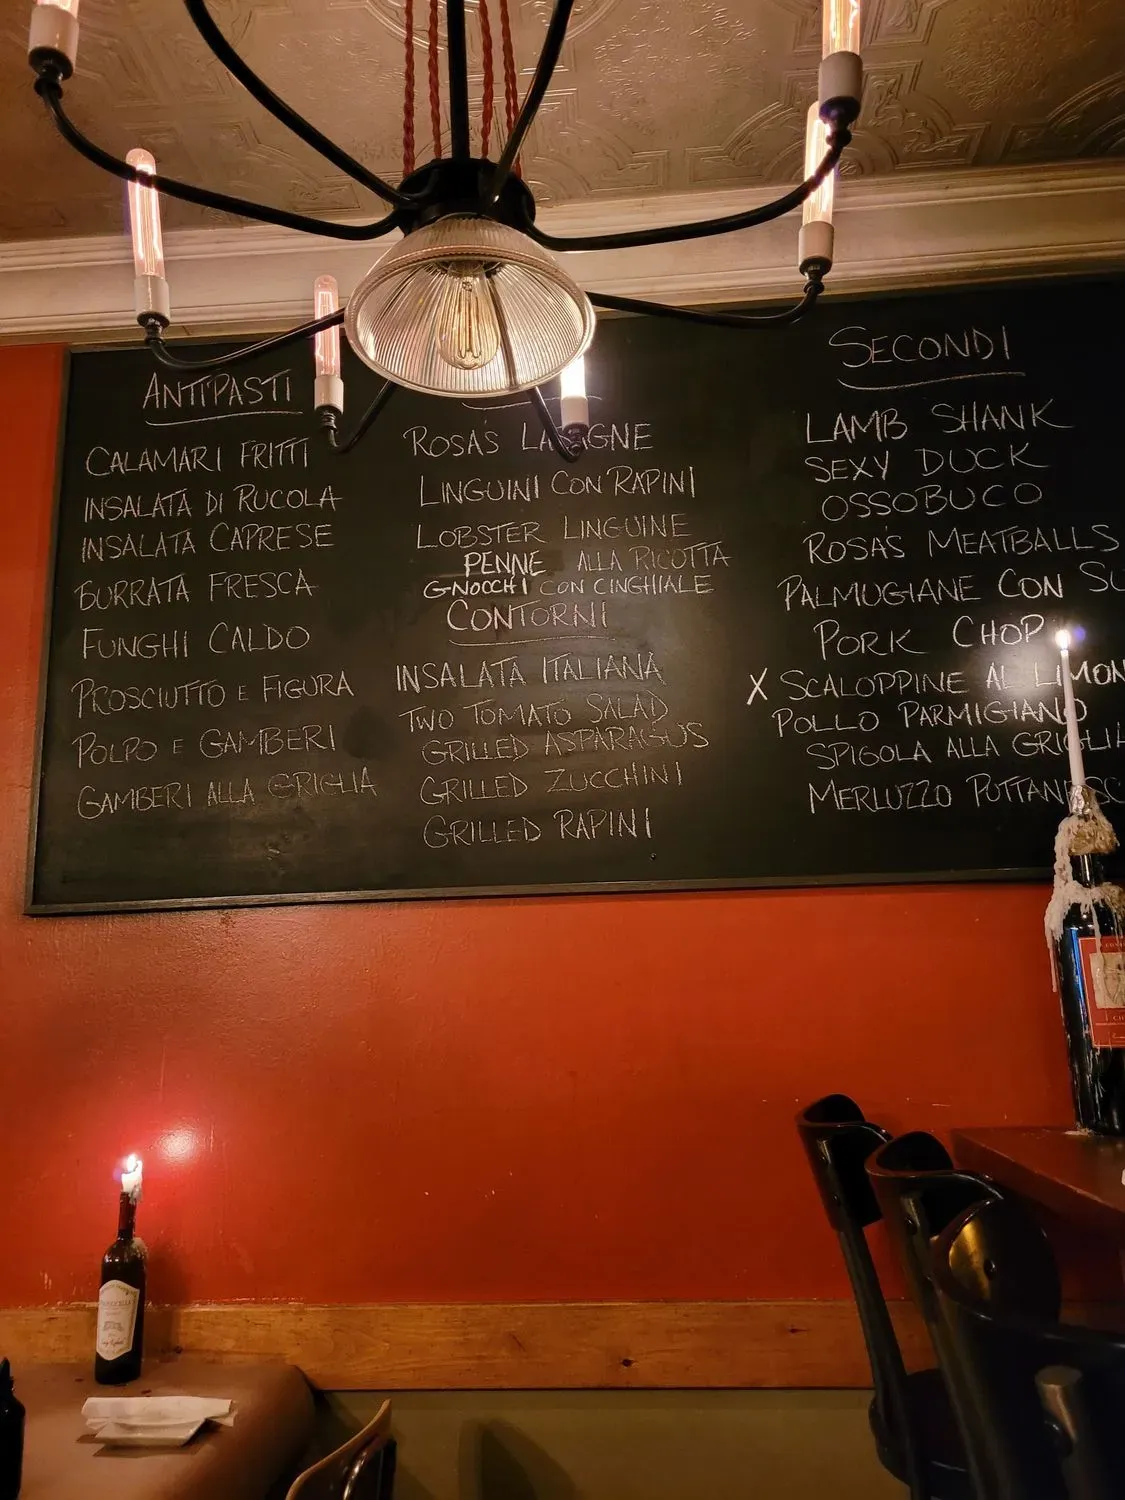 ANTIPASTI
CALAMARI FRITTI
INSALATA DI RUCOLA
INSALATA CAPRESE
BURRATA FRESCA
FUNGHI CALDO
PROSCIUTTO E FIGURA
POLPO E GAMBERI
GAMBERI ALLA GRIGLIA
ROSA'S LASAGNE
LINGUINI CON RAPINI
LOBSTER LINGUINE
PENNE ALLA RICOTTA
GNOCCHI CON CINGHIALE
CONTORNI
INSALATA ITALIANA
TWO TOMATO SALAD
GRILLED ASPARAGUS
GRILLED ZUCCHINI
GRILLED RAPINI
SECONDI
LAMB SHANK
SEXY DUCK
OSSOBUCO
ROSA'S MEATBALLS
PALMUGIANE CON
PORK CHOP
X SCALOPPINE AL LIMON
POLLO PARMIGIANO
SPIGOLA ALLA GRIGLIA
MERLUZZO PUTTANESC